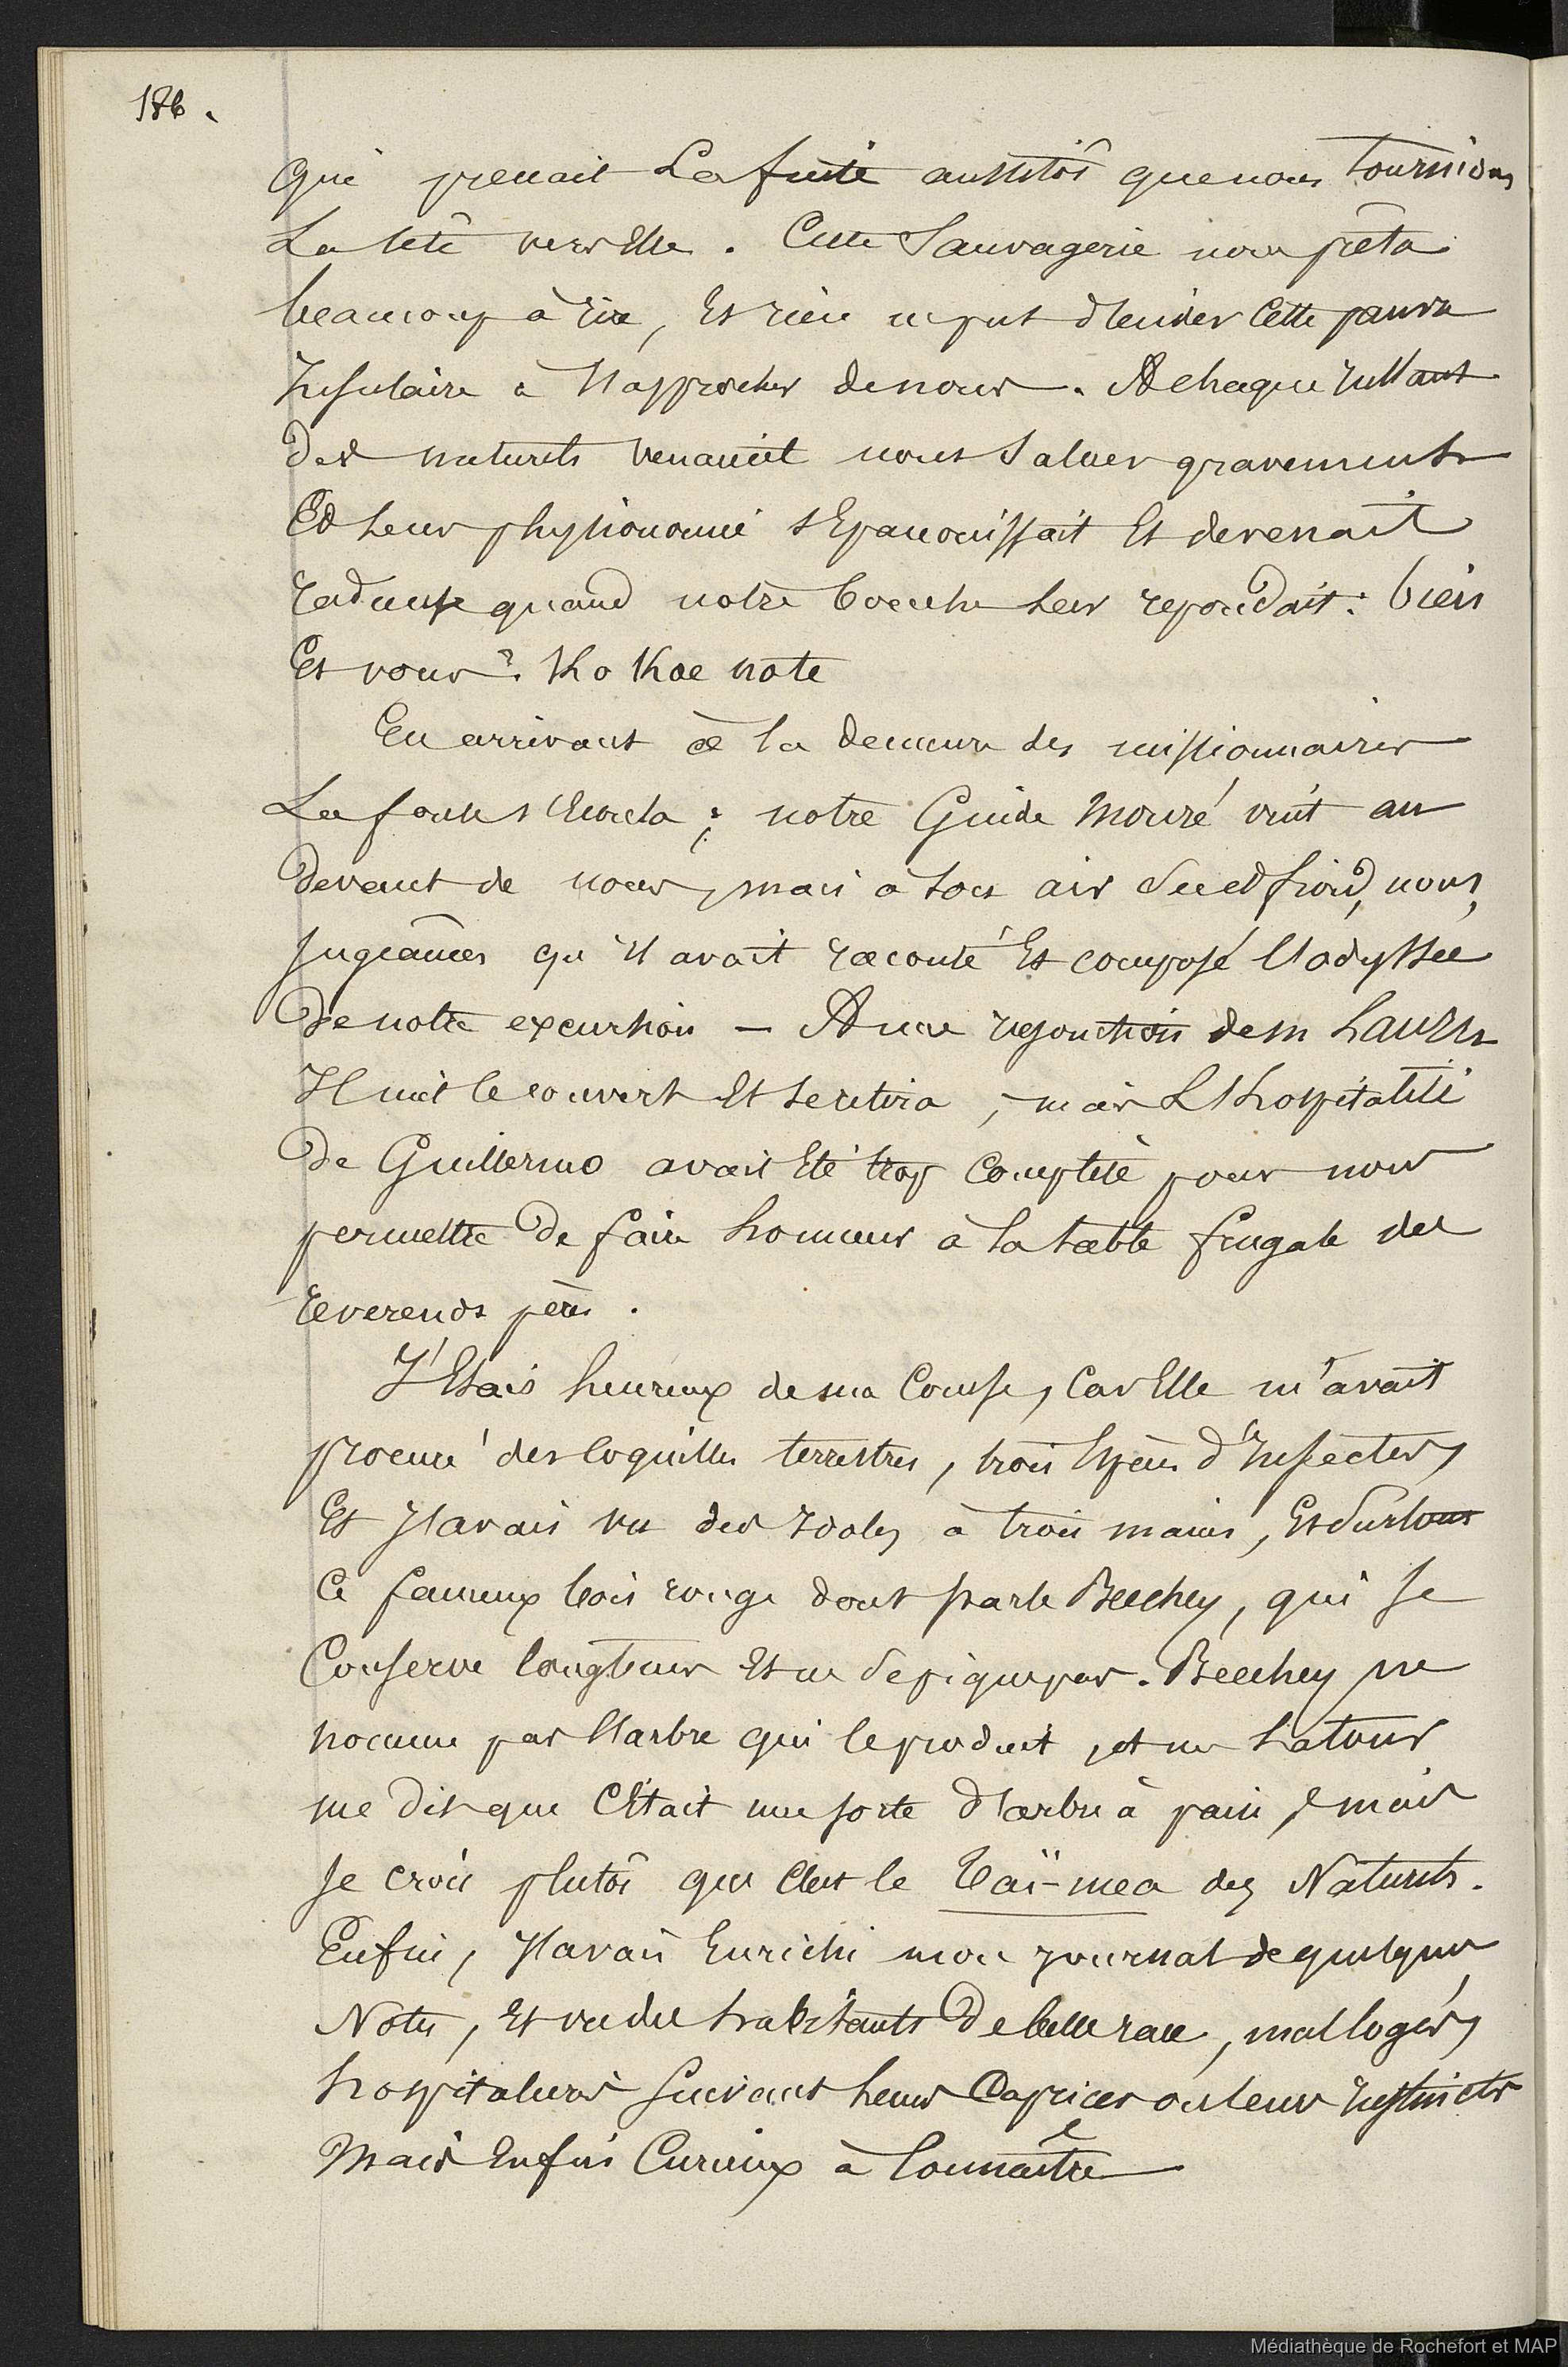 186.
qui prenait La fuite aussitôt que nous tournions
La tête vers Elle. Cette Sauvagerie nous prêta
beaucoup à rire, Et rien ne put d'Ecider Cette pauvre
Insulaire à s'approcher de nous. A chaque instant
Des naturels venaient nous Saluer gravement
Et Leur physionomie s'Epanouissait Et devenait
radieuse quand notre bouche Leur repondait: bien
Et vous? Ko Koe note
En arrivant à la demeure des missionnaires
La foule s'Ecoula; notre Guide Mouré vint au
devant de nous, mais à Son air Sec et froid, nous
jugeâmes qu'il avait raconté Et composé l'odyssée
De notre excursion — A une injonction de m Latour
Il mit le couvert Et se retira, mais L'hospitalité
De Guillermo avait Eté trop Complète pour nous
permettre De faire honneur à la table frugale des
reverends pères.
J'Etais heureux de ma Course, Car Elle m'avait
procuré des Coquilles terrestres, trois Espèces d'Insectes,
Et J'avais vu des Idoles à trois mains, Et Surtout
Ce fameux bois rouge dont parle Beechey, qui Se
Conserve longtems Et ne Se pique pas. Beechey ne
nomme pas l'arbre qui le produit, et m Latour
me dit que C'Etait une sorte d'arbre à pain, mais
Je crois plutôt que C'est le Taï-mea des Naturels.
Enfin, J'avais Enrichi mon journal de quelques
Notes, Et vu des habitants De belle race, mal logés,
hospitaliers Suivant Leurs Caprices ou leurs Instincts
Mais Enfin Curieux à Connaître
Médiathèque de Rochefort et MAP